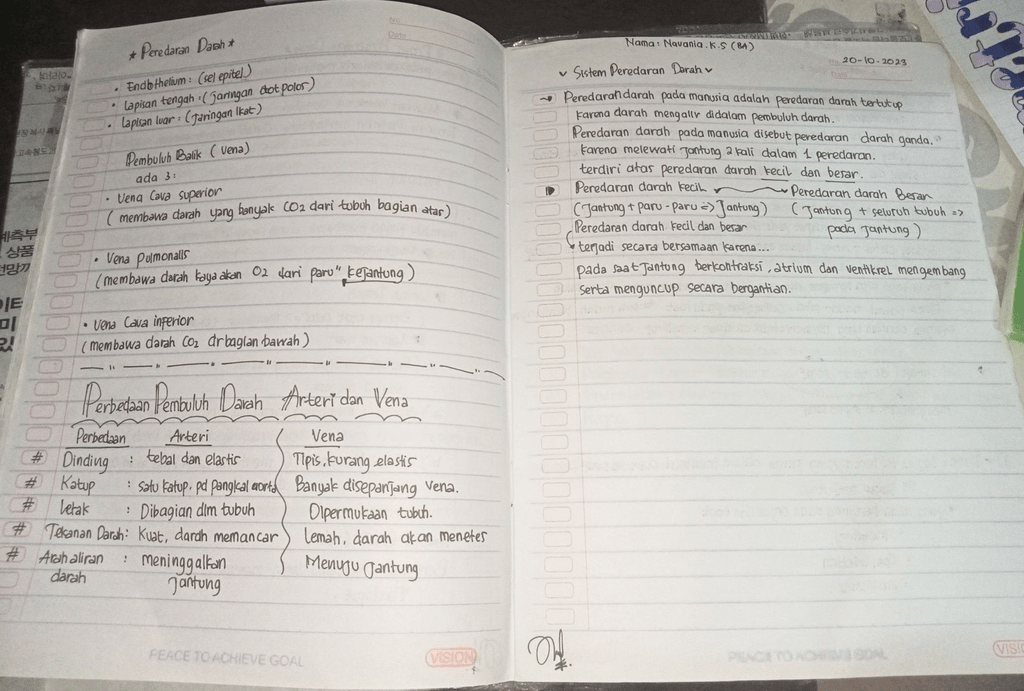 * Peredaran Darah *
• Endothelium: (sel epitel)
• Lapisan tengah: (Jaringan otot polos)
• Lapisan luar: (Jaringan Ikat)
Pembuluh Balik (Vena)
ada 3:
• Vena Cava superior
(membawa darah yang banyak CO2 dari tubuh bagian atas)
• Vena Pulmonalis
(membawa darah kaya akan O2 dari paru" kejantung)
• Vena Cava inferior
(membawa darah CO2 dr bagian bawah)
Perbedaan Pembuluh Darah Arteri dan Vena
Perbedaan Arteri Vena
# Dinding : tebal dan elastis Tipis, kurang elastis
# Katup : satu katup, pd pangkal aorta Banyak disepanjang vena.
# Letak : Dibagian dlm tubuh Dipermukaan tubuh.
# Tekanan Darah: Kuat, darah memancar Lemah, darah akan menetes
# Arah aliran : meninggalkan Menuju Jantung
darah Jantung
PEACE TO ACHIEVE GOAL VISION
Nama: Navania. K.S (8A)
20-10-2023
Sistem Peredaran Darah
Peredaran darah pada manusia adalah peredaran darah tertutup
karena darah mengalir didalam pembuluh darah.
Peredaran darah pada manusia disebut peredaran darah ganda,
karena melewati jantung 2 kali dalam 1 peredaran.
terdiri atas peredaran darah kecil dan besar.
Peredaran darah kecil Peredaran darah Besar
(Jantung + paru-paru => Jantung) (Jantung + seluruh tubuh =>
Peredaran darah kecil dan besar pada Jantung)
terjadi secara bersamaan karena...
pada saat Jantung berkontraksi, atrium dan ventikrel mengembang
serta menguncup secara bergantian.